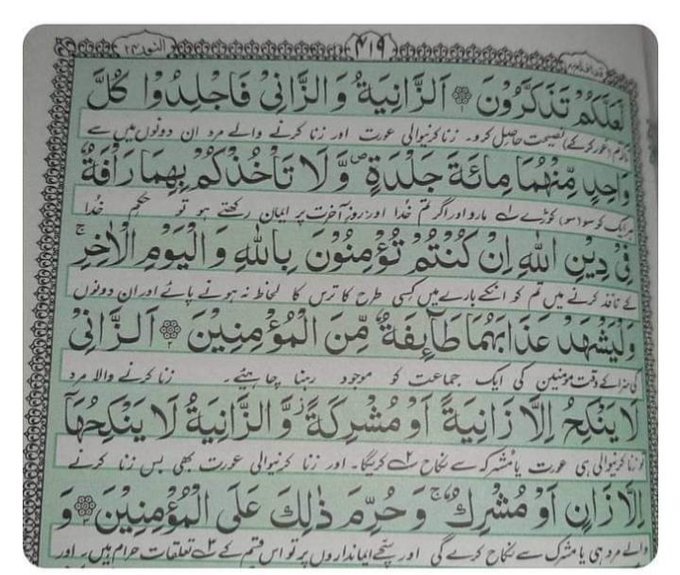 النور ۲۴
۴۱۹
لَعَلَّكُمْ تَذَكَّرُوْنَ ۱ اَلزَّانِيَةُ وَالزَّانِيْ فَاجْلِدُوْا كُلَّ
نصیحت حاصل کرو۔ زنا کرنیوالی عورت اور زنا کرنے والے مرد ان دونوں میں سے
وَاحِدٍ مِّنْهُمَا مِائَةَ جَلْدَةٍ ۪ وَّلَا تَاْخُذْكُمْ بِهِمَا رَاْفَةٌ
ہر ایک کو سو (سو) کوڑے مارو اور اگر تم خدا اور روز آخرت پر ایمان رکھتے ہو تو حکم خدا
فِيْ دِيْنِ اللّٰهِ اِنْ كُنْتُمْ تُؤْمِنُوْنَ بِاللّٰهِ وَالْيَوْمِ الْاٰخِرِ ۚ
کے نافذ کرنے میں تم کو انکے بارے میں کسی طرح کا ترس کا لحاظ نہ ہونے پائے اور ان دونوں
وَلْيَشْهَدْ عَذَابَهُمَا طَآئِفَةٌ مِّنَ الْمُؤْمِنِيْنَ ۲ اَلزَّانِيْ
کی سزا کے وقت مومنین کی ایک جماعت کو موجود رہنا چاہئے۔ زنا کرنے والا مرد
لَا يَنْكِحُ اِلَّا زَانِيَةً اَوْ مُشْرِكَةً ز وَّالزَّانِيَةُ لَا يَنْكِحُهَآ
تو زنا کرنیوالی ہی عورت یا مشرکہ سے نکاح کریگا۔ اور زنا کرنیوالی عورت بھی بس زنا کرنے
اِلَّا زَانٍ اَوْ مُشْرِكٌ ۚ وَحُرِّمَ ذٰلِكَ عَلَى الْمُؤْمِنِيْنَ ۳ وَ
والے مرد ہی یا مشرک سے نکاح کرے گی اور سچے ایمانداروں پر تو اس قسم کے تعلقات حرام ہیں۔ اور